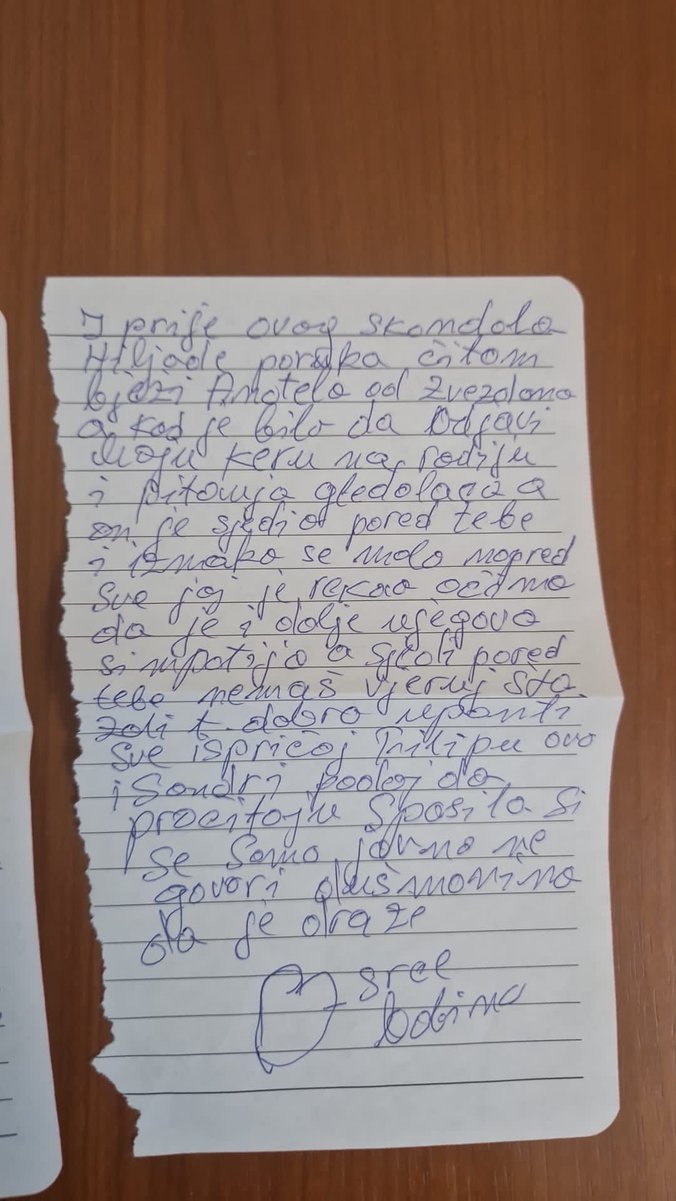 I prije ovog skandala
Hiljade poruka čitam
bježi Anatela od Zvezdana
a kad je bilo da
moju keru na
i pitanja gledalaca a
on je sjedio pored tebe
i izmako se malo napred
sve joj je rekao očima
da je i dalje njegova
simpatija a sjedi pored
tebe nemaš vjeruj šta
dobro
sve ispričaj Filipu ovo
i Sandri podaj da
pročitaju Spasila si
se samo javno ne
govori dušmanima
da je draže
srce